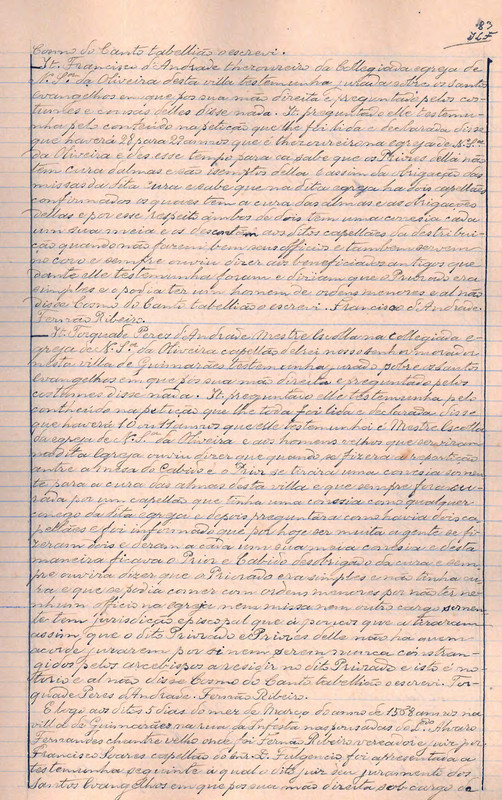 83
Cosmo do Canto tabellião o escrevi.
It. Francisco d'Andrade thezoureiro da Collegiada egreja de
N. Srª da Oliveira desta villa testemunha jurada sobre os Santos
evangelhos em que pos sua mão direita e preguntado pelos cos-
tumes e cousas delles disse nada. It. preguntado elle testemu-
nha pelo contheudo na petição que lhe foi lida e declarada disse
que haverá 28 para 29 annos que é thezoureiro na egreja de N. Srª
da Oliveira e des esse tempo para cá sabe que os Priores della não
tem cura d'almas e são isemptos della e assim da obrigação das
missas da dita cura e sabe que na dita egreja ha dois capellães
confirmados os quaes têm a cura das almas e as obrigações
dellas e por esse respeito ambos de dois tem uma conesia cada
um sua meia e os descontam aos ditos capellães da destribui-
ção quando não fazem bem seus officios e tambem servem
no coro e sempre ouviu dizer aos beneficiados antigos que
dante elle testemunha foram e diziam que o Priorado era
simples e o podia ter um homem de ordens menores e al não
disse Cosmo do Canto tabellião o escrevi. Francisco d'Andrade.
Fernão Ribeiro.
It. Torquade Peres d'Andrade Mestre Escolla na collegiada e-
greja de N. Srª da Oliveira capellão d'elrei nosso senhor morador
nesta villa de Guimarães testemunha jurado sobre os Santos
Evangelhos em que pos sua mão direita e preguntado pelos
custumes disse nada. It. preguntado elle testemunha pelo
contheudo na petição que lhe toda foi lida e declarada disse
que haverá 10 ou 11 annos que elle testemunha é Mestre Escolla
da egreja de N. Srª da Oliveira e aos homens velhos que serviram
na dita Egreja ouviu dizer que quando se fizera a repartição
antre a mesa do Cabido e o Prior se tirara uma conesia somen-
te para a cura das almas desta villa e que sempre fora cu-
rada por um capellão que tinha uma conesia como qualquer
conego da dita egreja e depois preguntara como havia dois ca-
pellães e foi informado que por hoje ser muita a gente se fi-
zeram dois e deram a cada um sua meia conesia e desta
maneira ficava o Prior e Cabido desobrigado da cura e sem-
pre ouvira dizer que o Priorado era simples e não tinha cu-
ra e que se podia comer com ordens menores por não ter ne-
nhum officio na egreja nem missa nem outro cargo somen-
te tem jurisdicção episcopal que á poucos que a tiraram
assim, que o dito Priorado e Priores delle não ha quem
acorde jurarem por si nem serem nunca constran-
gidos pelos arcebispos a resigir no dito Priorado e isto é no-
torio e al não disse Cosmo do Canto tabellião o escrevi. Tor-
quade Peres d'Andrade. Fernão Ribeiro.
E logo aos ditos 5 dias do mez de Março do anno de 1568 annos na
villa de Guimarães na rua da Infesta nas pousadas de Alvaro
Fernandes chantre velho onde foi Fernão Ribeiro vereador e juiz por
Francisco Soares capellão do snr. D. Fulgencio foi apresentada a
testemunha seguinte a qual o dito juiz deu juramento dos
Santos Evangelhos em que pos sua mão direita sob cargo do